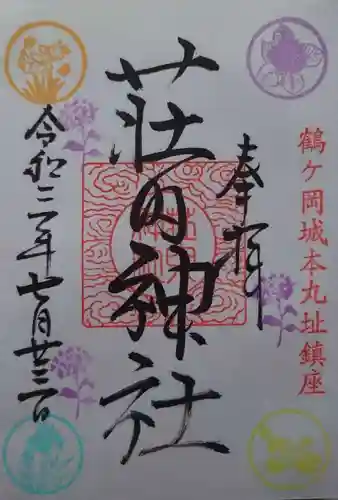 鶴ヶ岡城本丸址鎮座
奉拝
荘内神社
令和二年七月廿三日